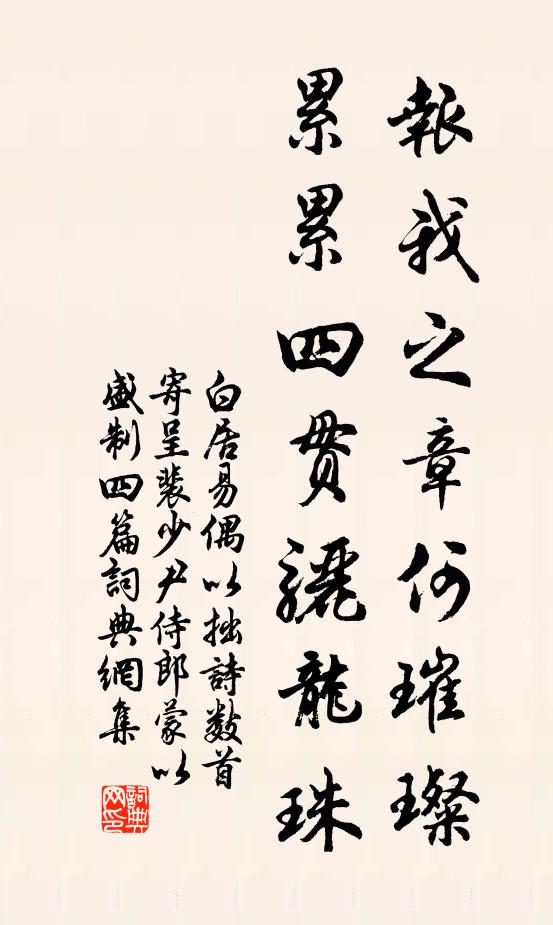 報我之章何璀璨
累累四貫驪龍珠
白居易偶以拙詩數首
寄呈裴少尹侍郎蒙以
盛制四篇詞典網集
詞典
网印